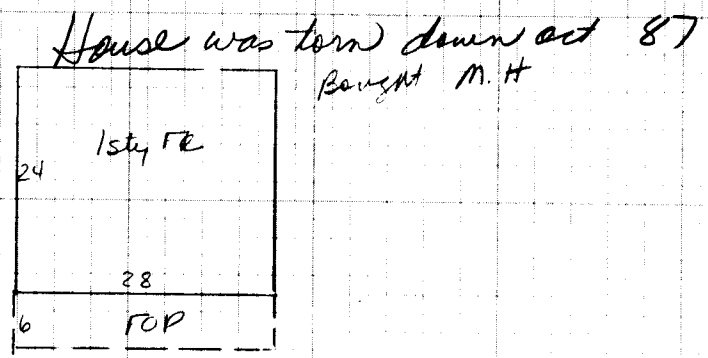 House was torn down oct 87
Bought M.H
1sty FR
24
28
6 FOP